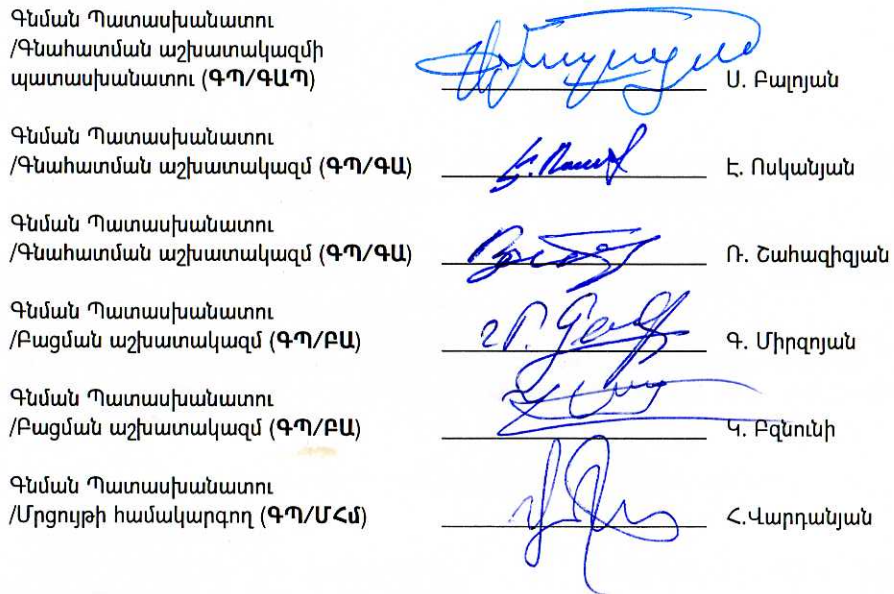 Գնման Պատասխանատու
/Գնահատման աշխատակազմի
պատասխանատու (ԳՊ/ԳԱՊ) Ս. Բալոյան
Գնման Պատասխանատու
/Գնահատման աշխատակազմ (ԳՊ/ԳԱ) Է. Ոսկանյան
Գնման Պատասխանատու
/Գնահատման աշխատակազմ (ԳՊ/ԳԱ) Ռ. Շահազիզյան
Գնման Պատասխանատու
/Բացման աշխատակազմ (ԳՊ/ԲԱ) Գ. Միրզոյան
Գնման Պատասխանատու
/Բացման աշխատակազմ (ԳՊ/ԲԱ) Կ. Բզնունի
Գնման Պատասխանատու
/Մրցույթի համակարգող (ԳՊ/ՄՀմ) Հ.Վարդանյան